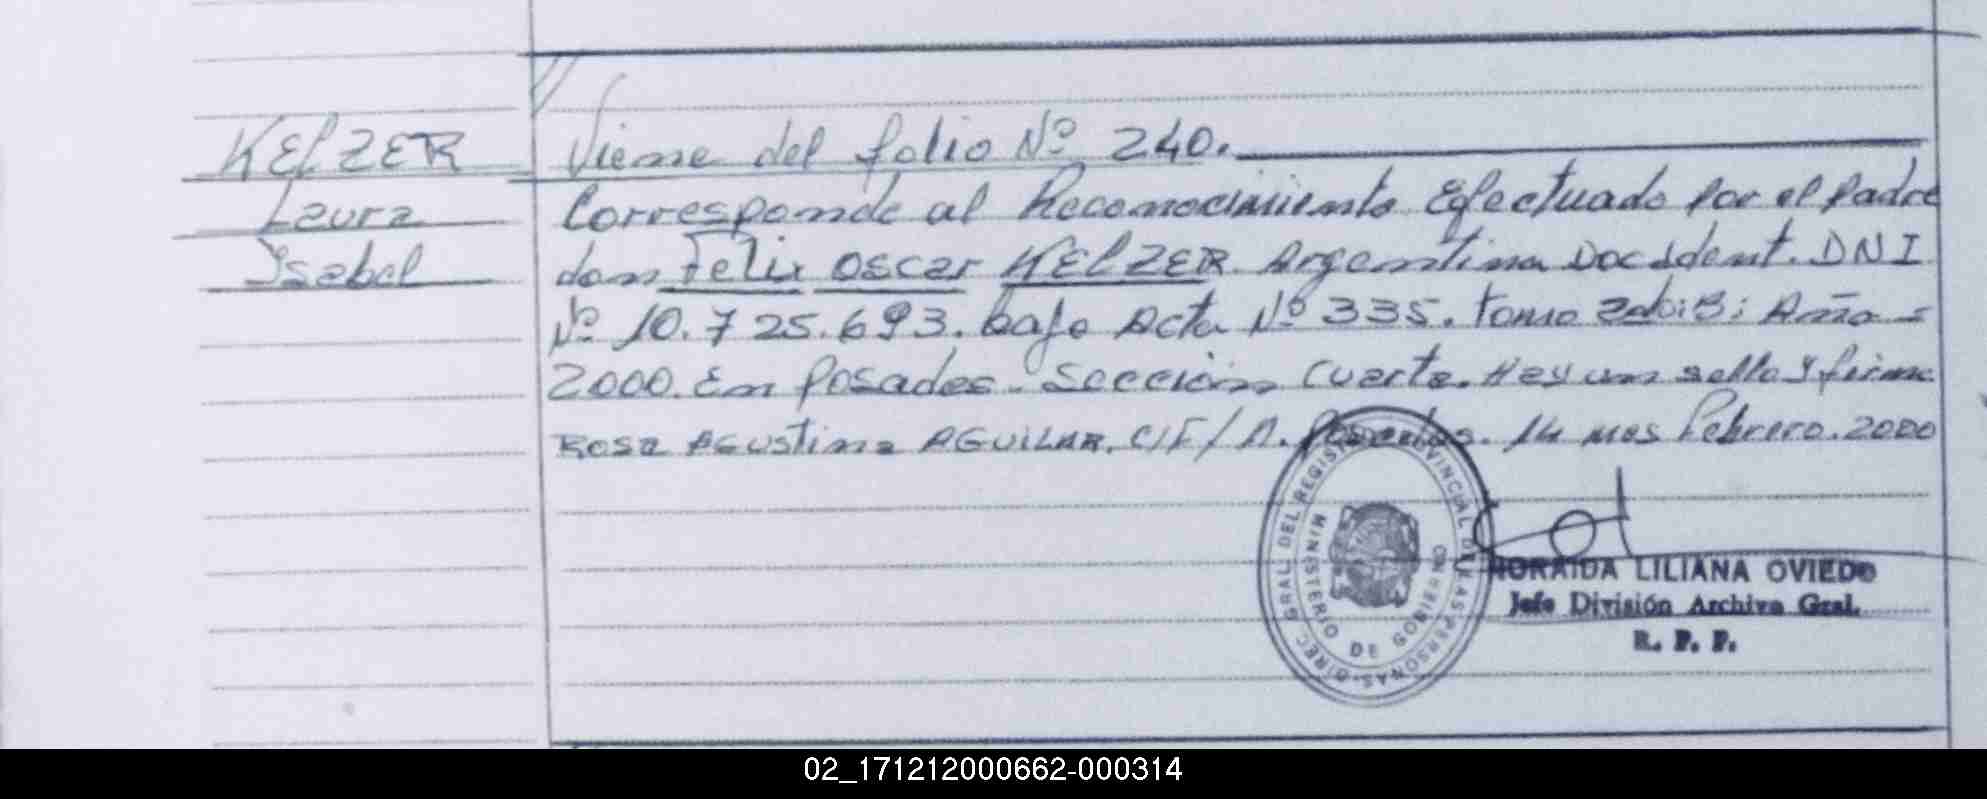 KELZER
Laura
Isabel
Viene del folio Nº 240.
Corresponde al Reconocimiento Efectuado por el padre
don Felix Oscar KELZER. Argentina Doc Ident. DNI
Nº 10.725.693. bajo Acta Nº 335. tomo Año =
2000. En Posadas. Sección Cuarta. Hay un sello y firma
Rosa Agustina AGUILAR. Posadas. 14 mes Febrero. 2000
DIREC. GRAL. DEL REGISTRO PROVINCIAL DE LAS PERSONAS
MINISTERIO DE GOBIERNO
HORAIDA LILIANA OVIEDO
Jefe División Archivo Gral.
R. P. P.
02_171212000662-000314